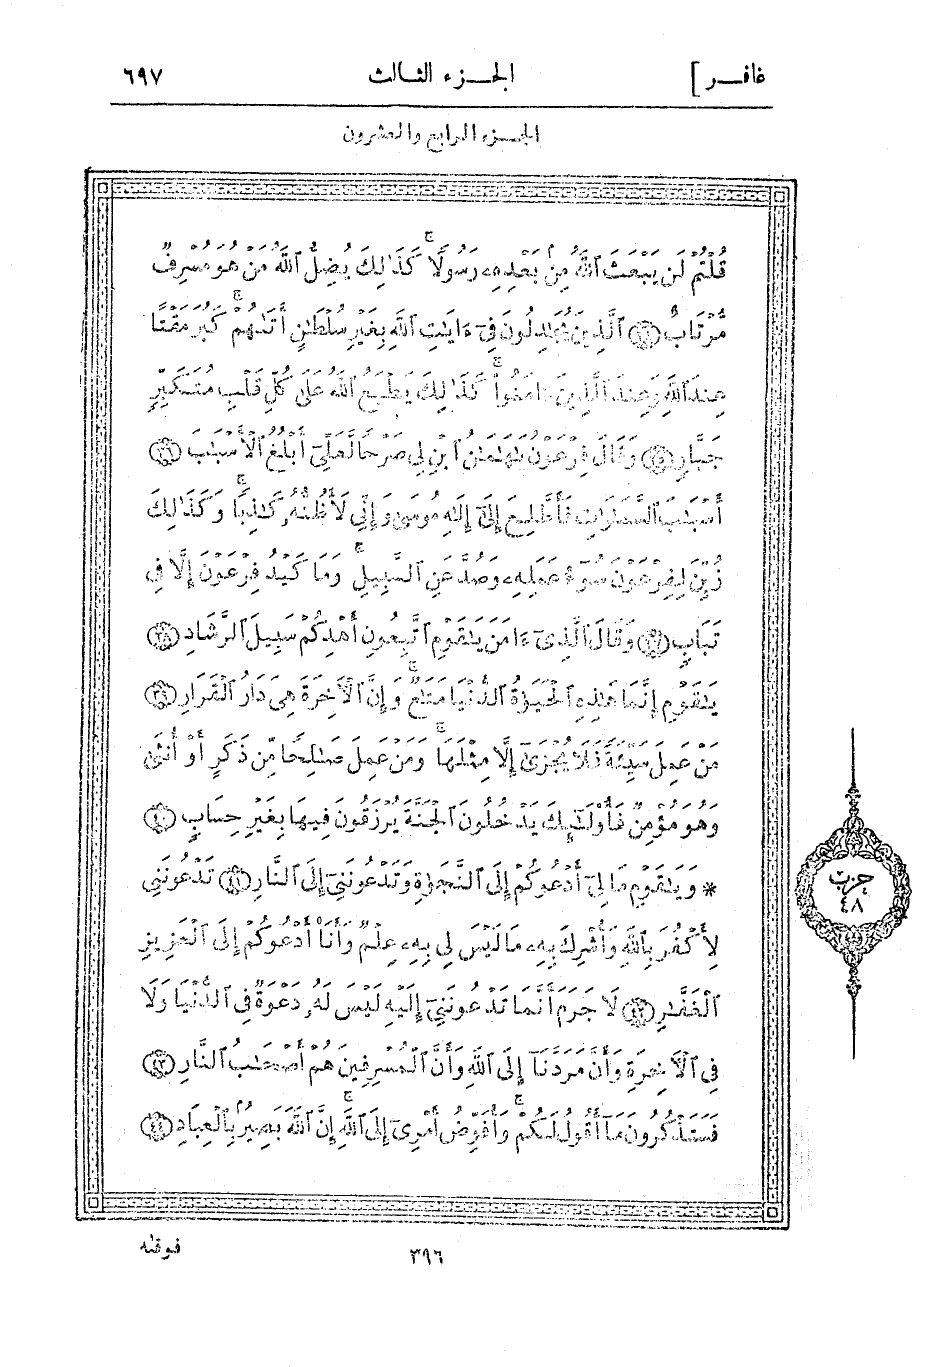 غافر]
الجزء الثالث
٦٩٧
الجزء الرابع والعشرون
قُلۡتُمۡ لَن يَبۡعَثَ ٱللَّهُ مِنۢ بَعۡدِهِۦ رَسُولٗاۚ كَذَٰلِكَ يُضِلُّ ٱللَّهُ مَنۡ هُوَ مُسۡرِفٞ
مُّرۡتَابٌ ٣٤ ٱلَّذِينَ يُجَٰدِلُونَ فِيٓ ءَايَٰتِ ٱللَّهِ بِغَيۡرِ سُلۡطَٰنٍ أَتَىٰهُمۡۖ كَبُرَ مَقۡتًا
عِندَ ٱللَّهِ وَعِندَ ٱلَّذِينَ ءَامَنُواْۚ كَذَٰلِكَ يَطۡبَعُ ٱللَّهُ عَلَىٰ كُلِّ قَلۡبِ مُتَكَبِّرٖ
جَبَّارٖ ٣٥ وَقَالَ فِرۡعَوۡنُ يَٰهَٰمَٰنُ ٱبۡنِ لِي صَرۡحٗا لَّعَلِّيٓ أَبۡلُغُ ٱلۡأَسۡبَٰبَ ٣٦
أَسۡبَٰبَ ٱلسَّمَٰوَٰتِ فَأَطَّلِعَ إِلَىٰٓ إِلَٰهِ مُوسَىٰ وَإِنِّي لَأَظُنُّهُۥ كَٰذِبٗاۚ وَكَذَٰلِكَ
زُيِّنَ لِفِرۡعَوۡنَ سُوٓءُ عَمَلِهِۦ وَصُدَّ عَنِ ٱلسَّبِيلِۚ وَمَا كَيۡدُ فِرۡعَوۡنَ إِلَّا فِي
تَبَابٖ ٣٧ وَقَالَ ٱلَّذِيٓ ءَامَنَ يَٰقَوۡمِ ٱتَّبِعُونِ أَهۡدِكُمۡ سَبِيلَ ٱلرَّشَادِ ٣٨
يَٰقَوۡمِ إِنَّمَا هَٰذِهِ ٱلۡحَيَوٰةُ ٱلدُّنۡيَا مَتَٰعٞۖ وَإِنَّ ٱلۡأٓخِرَةَ هِيَ دَارُ ٱلۡقَرَارِ ٣٩
مَنۡ عَمِلَ سَيِّئَةٗ فَلَا يُجۡزَىٰٓ إِلَّا مِثۡلَهَاۖ وَمَنۡ عَمِلَ صَٰلِحٗا مِّن ذَكَرٍ أَوۡ أُنثَىٰ
وَهُوَ مُؤۡمِنٞ فَأُوْلَٰٓئِكَ يَدۡخُلُونَ ٱلۡجَنَّةَ يُرۡزَقُونَ فِيهَا بِغَيۡرِ حِسَابٖ ٤٠
* وَيَٰقَوۡمِ مَا لِيٓ أَدۡعُوكُمۡ إِلَى ٱلنَّجَوٰةِ وَتَدۡعُونَنِيٓ إِلَى ٱلنَّارِ ٤١ تَدۡعُونَنِي
لِأَكۡفُرَ بِٱللَّهِ وَأُشۡرِكَ بِهِۦ مَا لَيۡسَ لِي بِهِۦ عِلۡمٞ وَأَنَا۠ أَدۡعُوكُمۡ إِلَى ٱلۡعَزِيزِ
ٱلۡغَفَّٰرِ ٤٢ لَا جَرَمَ أَنَّمَا تَدۡعُونَنِيٓ إِلَيۡهِ لَيۡسَ لَهُۥ دَعۡوَةٞ فِي ٱلدُّنۡيَا وَلَا
فِي ٱلۡأٓخِرَةِ وَأَنَّ مَرَدَّنَآ إِلَى ٱللَّهِ وَأَنَّ ٱلۡمُسۡرِفِينَ هُمۡ أَصۡحَٰبُ ٱلنَّارِ ٤٣
فَسَتَذۡكُرُونَ مَآ أَقُولُ لَكُمۡۚ وَأُفَوِّضُ أَمۡرِيٓ إِلَى ٱللَّهِۚ إِنَّ ٱللَّهَ بَصِيرُۢ بِٱلۡعِبَادِ ٤٤
حزب
٤٨
فوقىٰه
٣٩٦